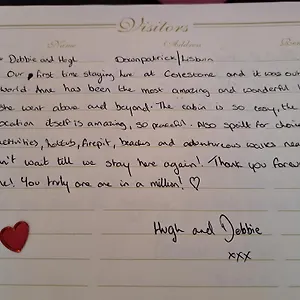 Visitors
Name Address
Debbie and Hugh Downpatrick/Lisburn
Our first time staying here at Celestone and it was our
world Anne has been the most amazing and wonderful
she went above and beyond. The cabin is so cosy, the
ocation itself is amazing, so peaceful. Also spoilt for choice
activities, hottub, firepit, beaches and adventurous walks near
n't wait till we stay here again! Thank you forever
ne! You truly are one in a million! ♡
Hugh and Debbie
xxx